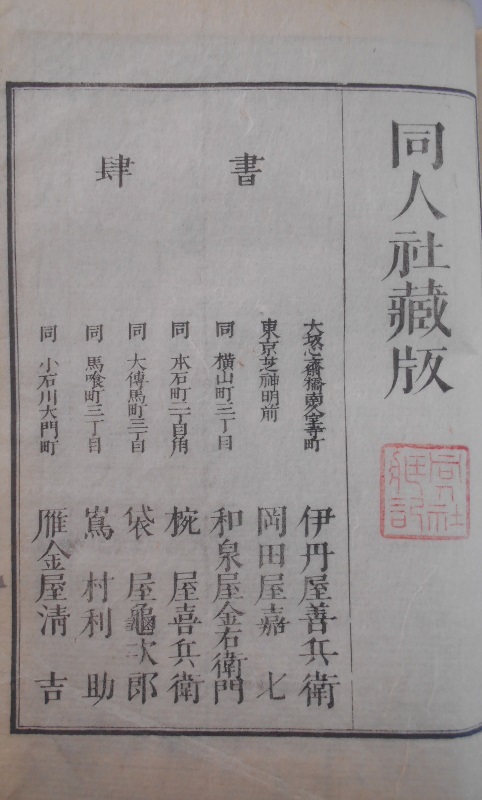 同人社藏版
書肆
大坂心齋橋南久宝寺町 伊丹屋善兵衛
東京芝神明前 岡田屋嘉七
同 横山町三丁目 和泉屋金右衛門
同 本石町二丁目角 椀屋喜兵衛
同 大傳馬町三丁目 袋屋龜次郎
同 馬喰町三丁目 嶌村利助
同 小石川大門町 雁金屋清吉